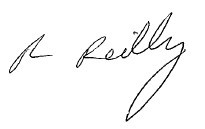 R Reilly